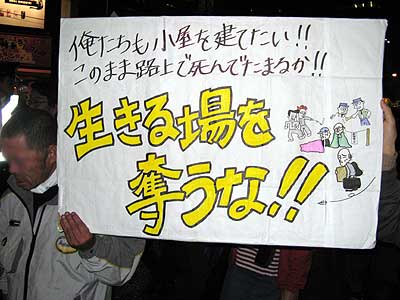 俺たちも小屋を建てたい!!
このまま路上で死んでたまるか!!
生きる場を
奪うな!!